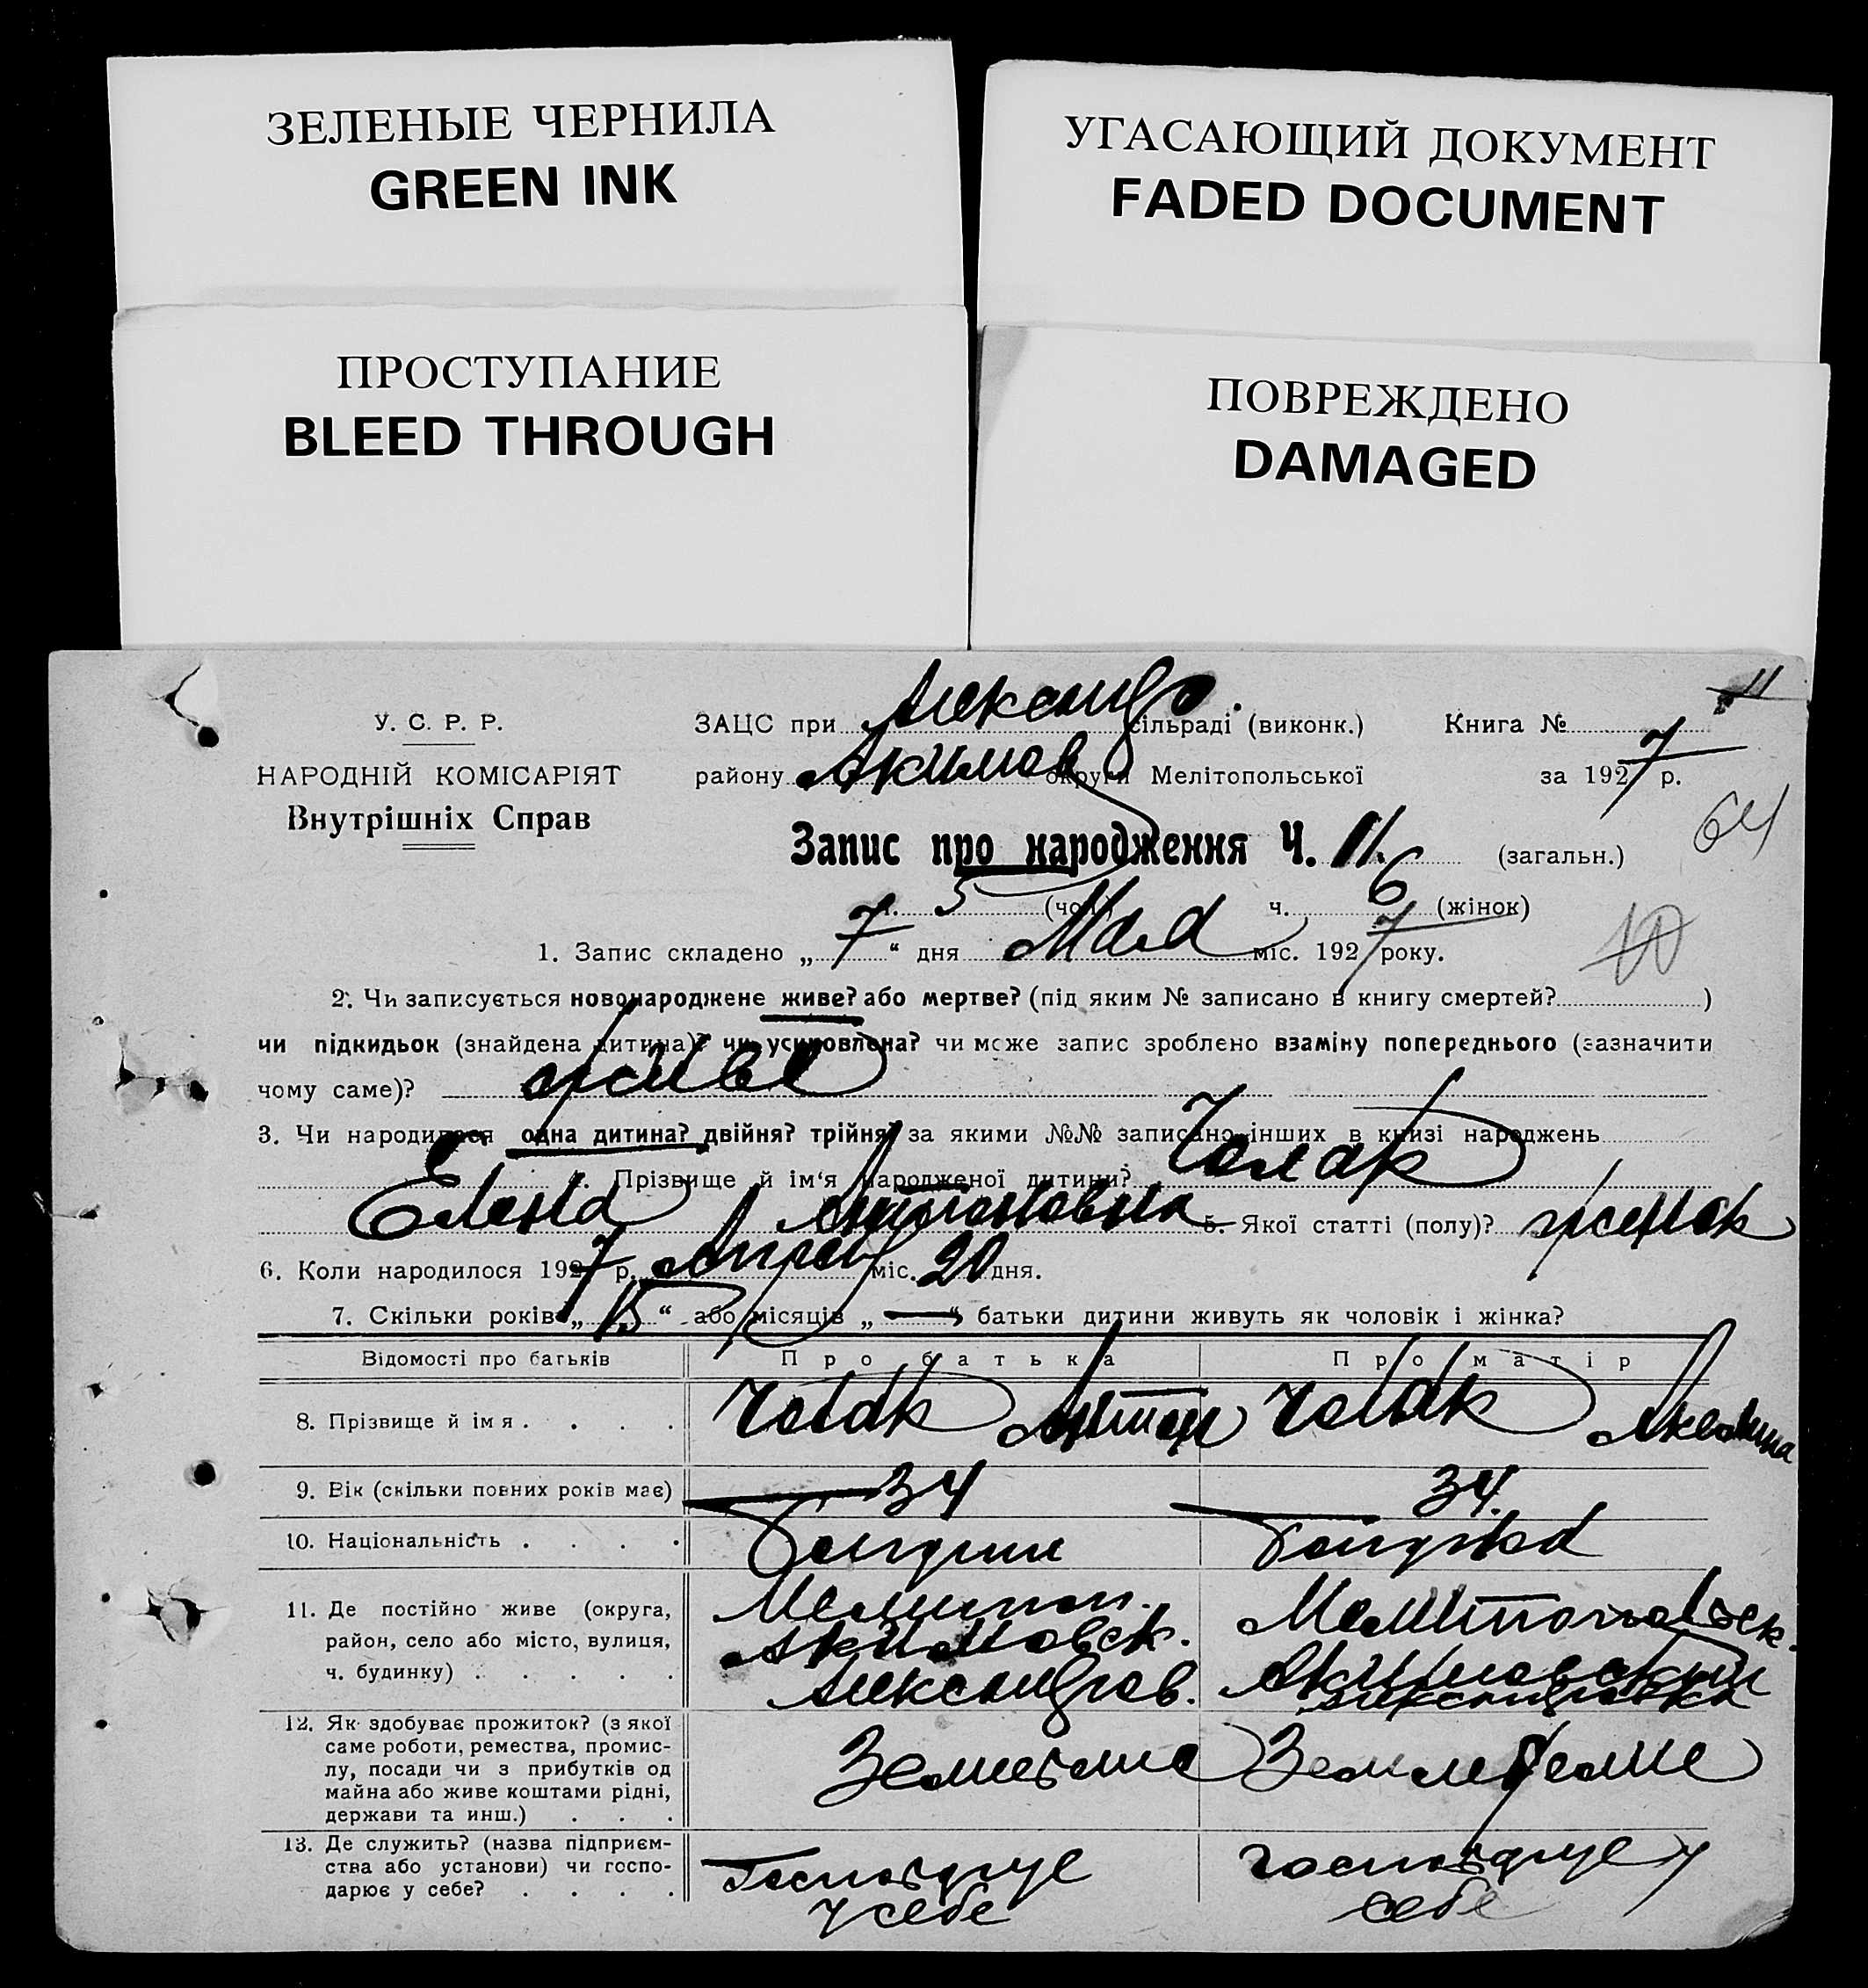 ЗЕЛЕНЫЕ ЧЕРНИЛА
GREEN INK
УГАСАЮЩИЙ ДОКУМЕНТ
FADED DOCUMENT
ПРОСТУПАНИЕ
BLEED THROUGH
ПОВРЕЖДЕНО
DAMAGED
У. С. Р. Р.
НАРОДНІЙ КОМІСАРІЯТ
Внутрішніх Справ
ЗАЦС при Александро. сільраді (виконк.) Книга №
району Акимов округи Мелітопольської за 1927 р.
64
Запис про народження Ч. 11. (загальн.)
ч. 5 (чол.) ч. 6 (жінок)
10
1. Запис складено „7“ дня Мая міс. 1927 року.
2. Чи записується новонароджене живе? або мертве? (під яким № записано в книгу смертей? )
чи підкидьок (знайдена дитина)? чи усиновлена? чи може запис зроблено взаміну попереднього (зазначити
чому саме)? живе
3. Чи народилася одна дитина? двійня? трійня? за якими №№ записано інших в книзі народжень
4. Прізвище й ім‘я народженої дитини? Чолак
Елена Антоновна 5. Якої статті (полу)? жинок
6. Коли народилося 1927 р. Апреля міс. 20 дня.
7. Скільки років „15“ або місяців „—“ батьки дитини живуть як чоловік і жінка?
Відомості про батьків Про батька Про матір
8. Прізвище й імя Чолак Антон Чолак Акелина
9. Вік (скільки повних років має) 34 34.
10. Національність Болгрин Болгрка
11. Де постійно живе (округа,
район, село або місто, вулиця,
ч. будинку)
Мелитоп.
Акимовск.
Александров.
Мелитопольск.
Акимовский
Александровка
12. Як здобуває прожиток? (з якої
саме роботи, ремества, промис-
лу, посади чи з прибутків од
майна або живе коштами рідні,
держави та инш.)
13. Де служить? (назва підприєм-
ства або установи) чи госпо-
дарює у себе?
Господрує
у себе
господрує у
себе